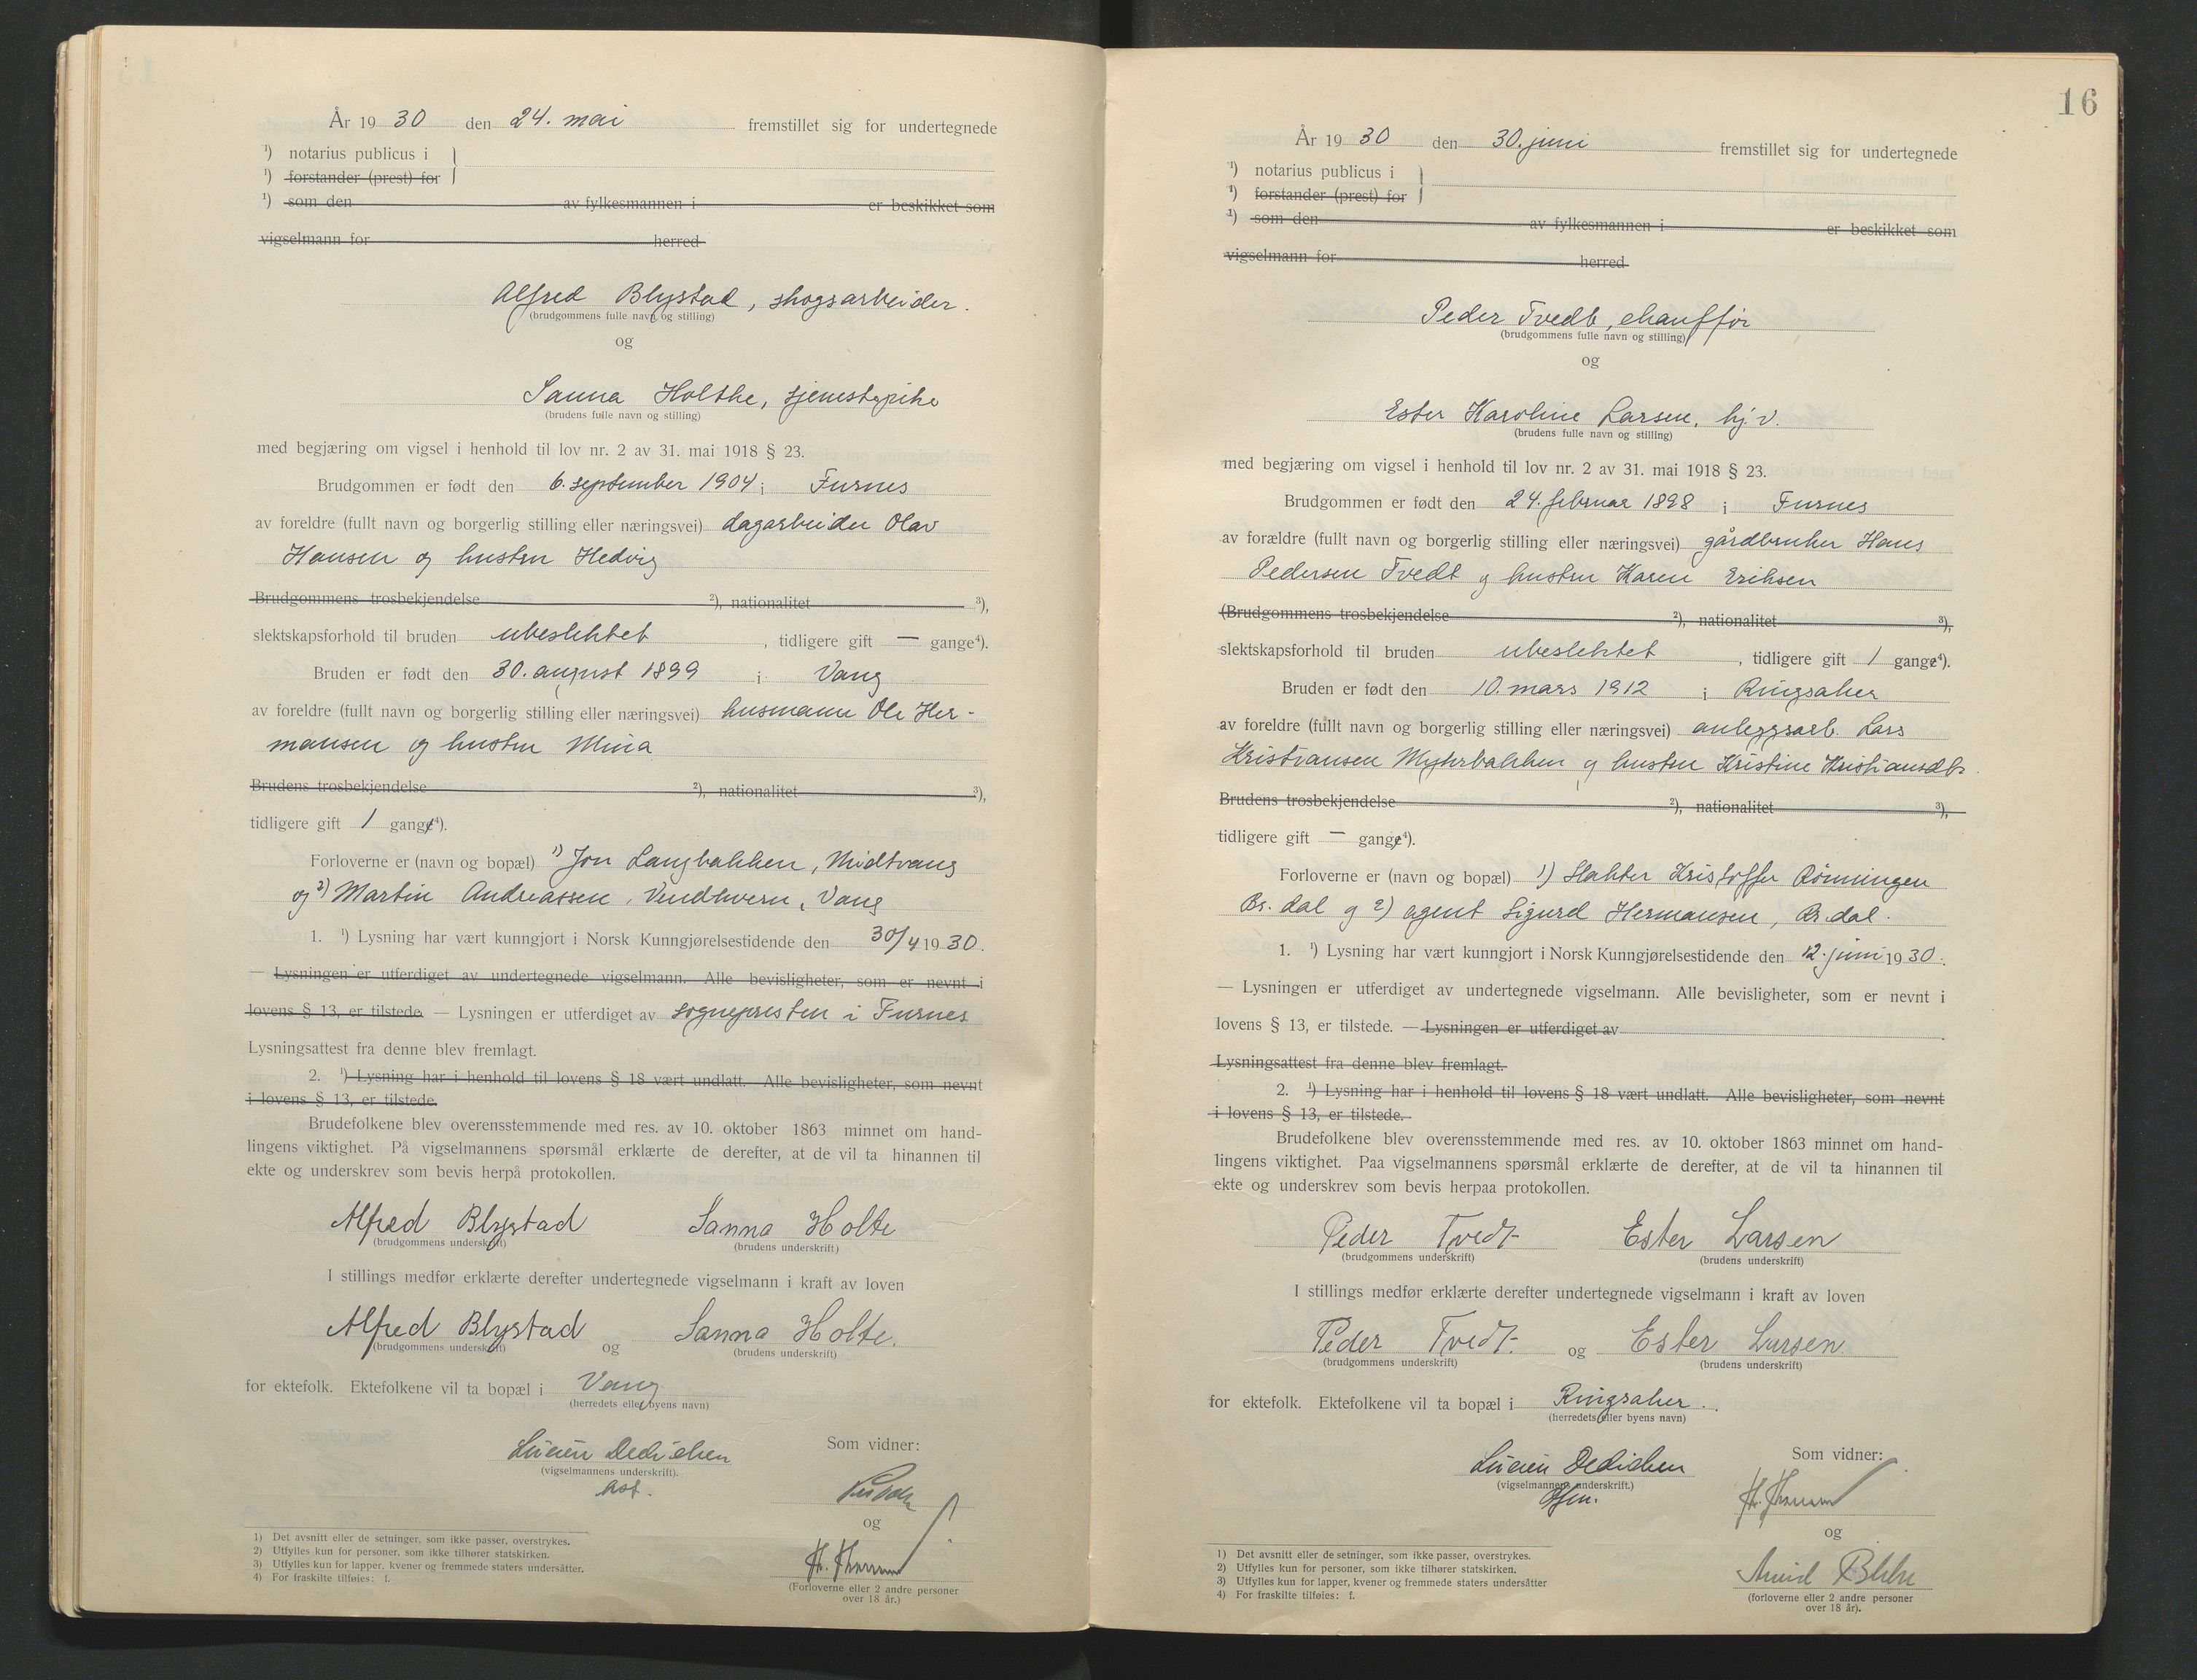 År 1930 den 24. mai fremstillet sig for undertegnede
¹) notarius publicus i
¹) forstander (prest) for
¹) som den av fylkesmannen i er beskikket som
vigselmann for herred
Alfred Blystad, skogsarbeider.
(brudgommens fulle navn og stilling)
og
Sanna Holthe, tjenestepike
(brudens fulle navn og stilling)
med begjæring om vigsel i henhold til lov nr. 2 av 31. mai 1918 § 23.
Brudgommen er født den 6. september 1904 i Furnes
av foreldre (fullt navn og borgerlig stilling eller næringsvei) dagarbeider Olav
Hansen og hustru Hedvig
Brudgommens trosbekjendelse ²), nationalitet ³),
slektskapsforhold til bruden ubeslektet, tidligere gift — gange⁴).
Bruden er født den 30. august 1899 i Vang
av foreldre (fullt navn og borgerlig stilling eller næringsvei) husmann Ole Her-
mansen og hustru Mina
Brudens trosbekjendelse ²), nationalitet ³),
tidligere gift 1 gange⁴).
Forloverne er (navn og bopæl) 1) Jon Langbakken, Midtvang
og 2) Martin Andreassen, Vendkvern, Vang
1. ¹) Lysning har vært kunngjort i Norsk Kunngjørelsestidende den 30/4 1930.
— Lysningen er utferdiget av undertegnede vigselmann. Alle bevisligheter, som er nevnt i
lovens § 13, er tilstede. — Lysningen er utferdiget av sognepresten i Furnes
Lysningsattest fra denne blev fremlagt.
2. ¹) Lysning har i henhold til lovens § 18 vært undlatt. Alle bevisligheter, som nevnt
i lovens § 13, er tilstede.
Brudefolkene blev overensstemmende med res. av 10. oktober 1863 minnet om hand-
lingens viktighet. På vigselmannens spørsmål erklærte de derefter, at de vil ta hinannen til
ekte og underskrev som bevis herpå protokollen.
Alfred Blystad Sanna Holte
(brudgommens underskrift) (brudens underskrift)
I stillings medfør erklærte derefter undertegnede vigselmann i kraft av loven
Alfred Blystad og Sanna Holte.
(brudgommens underskrift) (brudens underskrift)
for ektefolk. Ektefolkene vil ta bopæl i Vang
(herredets eller byens navn)
Som vidner:
Lucien Dedichen
(vigselmannens underskrift).
og
(Forloverne eller 2 andre personer
over 18 år.)
1) Det avsnitt eller de setninger, som ikke passer, overstrykes.
2) Utfylles kun for personer, som ikke tilhører statskirken.
3) Utfylles kun for lapper, kvener og fremmede staters undersåtter.
4) For fraskilte tilføies: f.
16
År 1930 den 30. juni fremstillet sig for undertegnede
¹) notarius publicus i
¹) forstander (prest) for
¹) som den av fylkesmannen i er beskikket som
vigselmann for herred
Peder Tvedt, chauffør
(brudgommens fulle navn og stilling)
og
Ester Karoline Larsen, hj. v.
(brudens fulle navn og stilling)
med begjæring om vigsel i henhold til lov nr. 2 av 31. mai 1918 § 23.
Brudgommen er født den 24. februar 1898 i Furnes
av forældre (fullt navn og borgerlig stilling eller næringsvei) gårdbruker Hans
Pedersen Tvedt og hustru Karen Eriksen
(Brudgommens trosbekjendelse ²), nationalitet ³),
slektskapsforhold til bruden ubeslektet, tidligere gift 1 gange⁴).
Bruden er født den 10. mars 1912 i Ringsaker
av foreldre (fullt navn og borgerlig stilling eller næringsvei) anleggsarb. Lars
Kristiansen Myhrbakken og hustru Kristine Kristiansdtr.
Brudens trosbekjendelse ²), nationalitet ³),
tidligere gift — gange⁴).
Forloverne er (navn og bopæl) 1) Slakter Kristoffer Rønningen
Br. dal og 2) agent Sigurd Hermansen, Br. dal.
1. ¹) Lysning har vært kunngjort i Norsk Kunngjørelsestidende den 12. juni 1930.
— Lysningen er utferdiget av undertegnede vigselmann. Alle bevisligheter, som er nevnt i
lovens § 13, er tilstede. — Lysningen er utferdiget av
Lysningsattest fra denne blev fremlagt.
2. ¹) Lysning har i henhold til lovens § 18 vært undlatt. Alle bevisligheter, som nevnt
i lovens § 13, er tilstede.
Brudefolkene blev overensstemmende med res. av 10. oktober 1863 minnet om hand-
lingens viktighet. Paa vigselmannens spørsmål erklærte de derefter, at de vil ta hinannen til
ekte og underskrev som bevis herpaa protokollen.
Peder Tvedt Ester Larsen
(brudgommens underskrift) (brudens underskrift)
I stillings medfør erklærte derefter undertegnede vigselmann i kraft av loven
Peder Tvedt. og Ester Larsen
(brudgommens underskrift) (brudens underskrift)
for ektefolk. Ektefolkene vil ta bopæl i Ringsaker.
(herredets eller byens navn)
Som vidner:
Lucien Dedichen
(vigselmannens underskrift.)
og
(forloverne eller 2 andre personer
over 18 år).
1) Det avsnitt eller de setninger, som ikke passer, overstrykes.
2) Utfylles kun for personer, som ikke tilhører statskirken.
3) Utfylles kun for lapper, kvener og fremmede staters undersåtter
4) For fraskilte tilføies: f.